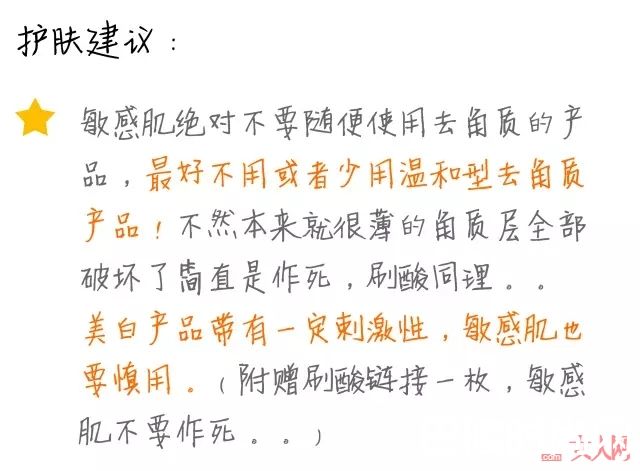 护肤建议：
敏感肌绝对不要随便使用去角质的产
品，最好不用或者少用温和型去角质
产品！不然本来就很薄的角质层全部
破坏了简直是作死，刷酸同理。。
美白产品带有一定刺激性，敏感肌也
要慎用。（附赠刷酸链接一枚，敏感
肌不要作死。。）
.com 女人网